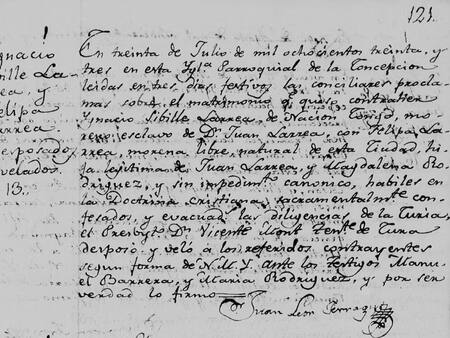 121.
Ignacio
bille La-
rea, y
Felipa
Larrea
desposado,
velados
13.
En treinta de Julio de mil ochocientos treinta, y
tres en esta Ygla Parroquial de la Concepcion
leidas en tres dias festivos las conciliares procla
mas sobre el matrimonio q. quis. contraher
Ygnacio Sibille Larrea, de Nacion Congo, mo
reno, esclavo de Dn. Juan Larrea, con Felipa La
rrea, morena libre, natural de esta Ciudad, hi
ja legitima de Juan Larrea, y Magdalena Ro-
driguez, y sin impedimto. canonico, habiles en
la Doctrina Cristiana, sacramentalmte. con
fesados, y evacuads. las diligencias de la Curia,
el Presbyto. Dn. Vicente Mont Tente. de Cura
desposó, y veló à los referidos contrayentes
segun forma de N. M. Y. ante los testigos Manu-
el Barrera, y Maria Rodriguez, y por ser
verdad lo firmo
Dr. Juan Leon Ferragut